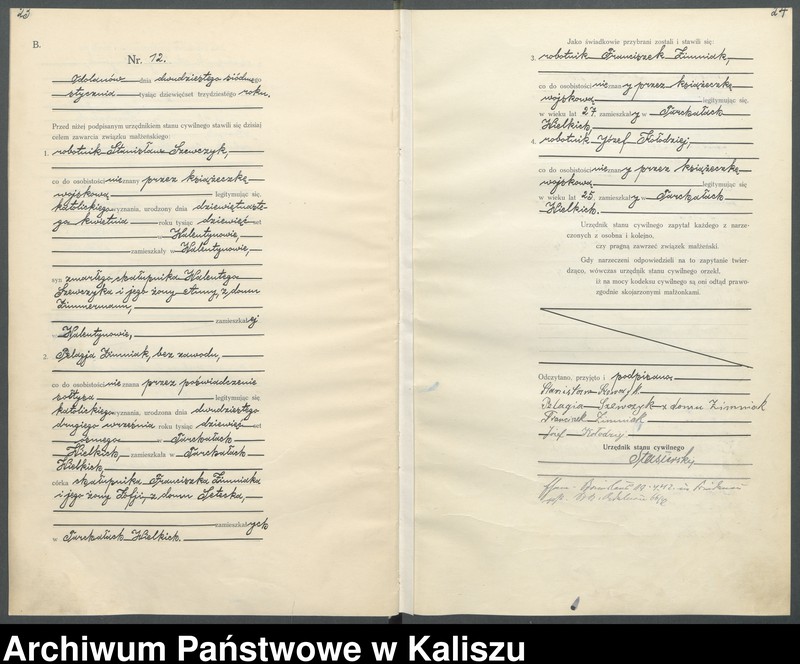 23
B.
Nr. 12.
Odolanów dnia dwudziestego siódmego
stycznia tysiąc dziewięćset trzydziestego roku.
Przed niżej podpisanym urzędnikiem stanu cywilnego stawili się dzisiaj
celem zawarcia związku małżeńskiego:
1. robotnik Stanisław Szewczyk,
co do osobistości nieznany przez książeczkę
wojskową legitymując się,
katolickiego wyznania, urodzony dnia dziewiętnaste-
go kwietnia roku tysiąc dziewięć set
Walentynowie,
zamieszkały w Walentynowie,
syn zmarłego chałupnika Walentego
Szewczyka i jego żony Anny, z domu
Zimmermann,
zamieszkałej
Walentynowie,
2. Pelagja Zimniak, bez zawodu,
co do osobistości nieznana przez poświadczenie
sołtysa legitymując się,
katolickiego wyznania, urodzona dnia dwudziestego
drugiego września roku tysiąc dziewięć set
ósmego w Tarchałach
Wielkich, zamieszkała w Tarchałach
Wielkich
córka chałupnika Franciszka Zimniaka
i jego żony Zofji, z domu
zamieszkałych
w Tarchałach Wielkich.
24
Jako świadkowie przybrani zostali i stawili się:
3. robotnik Franciszek Zimniak,
co do osobistości nieznany przez książeczkę
wojskową legitymując się,
w wieku lat 27, zamieszkały w Tarchałach
Wielkich.
4. robotnik Józef Kołodziej,
co do osobistości nieznany przez książeczkę
wojskową legitymując się,
w wieku lat 25, zamieszkały w Tarchałach
Wielkich.
Urzędnik stanu cywilnego zapytał każdego z narze-
czonych z osobna i kolejno,
czy pragną zawrzeć związek małżeński.
Gdy narzeczeni odpowiedzieli na to zapytanie twier-
dząco, wówczas urzędnik stanu cywilnego orzekł,
iż na mocy kodeksu cywilnego są oni odtąd prawo-
zgodnie skojarzonymi małżonkami.
Odczytano, przyjęto i podpisano:
Stanisław Szewczyk
Pelagia Szewczyk z domu Zimniak
Franciszek Zimniak
Józef Kołodziej
Urzędnik stanu cywilnego
Archiwum Państwowe w Kaliszu